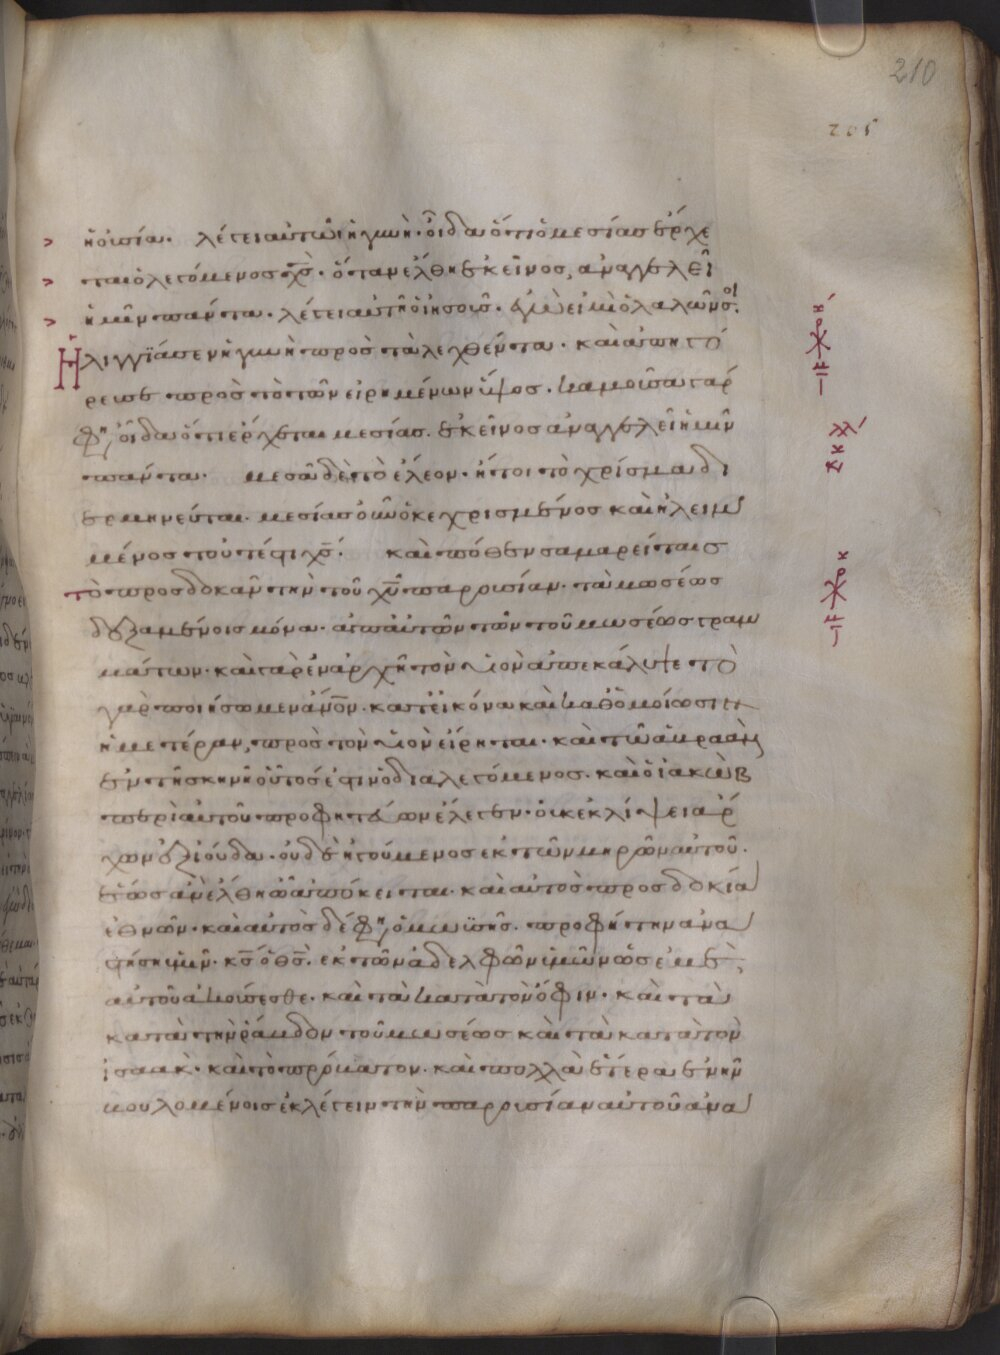 210
205
ἡ οὐσία. λέγει αὐτῶ ἡ γυνή· οἶδα ὅτι ὁ μεσίας ἔρχε
ται ὁ λεγόμενος χς· ὅταν ἔλθη ἐκεῖνος, ἀναγγελεῖ
ἡμῖν πάντα. λέγει αὐτῆ ὁ ις· ἐγώ εἰμι ὁ λαλῶν σοι.
Ηλιγγίασεν ἡ γυνὴ πρὸς τὰ λεχθέντα. καὶ ἀπηγό
ρευσε πρὸς τὸ τῶν εἰρημένων ὕψος. καμοῦσα γάρ
φη, οἶδα ὅτι ἔρχεται μεσίας. ἐκεῖνος ἀναγγελεῖ ἡμῖν
πάντα. μεσᾶ δὲ τὸ ἔλεον. ἤτοι τὸ χρίσμα δι
ερμηνεύεται. μεσίας οὖν ὁ κεχρισμένος καὶ ἠλειμ
μένος τουτέστι χς. καὶ πόθεν σαμαρείταις
τὸ προσδοκᾶν τὴν τοῦ χυ παρουσίαν. τὰ μωσέως
δεξαμένοις μόνα. ἀπ αὐτῶν τῶν τοῦ μωσέως γραμ
μάτων. καὶ γὰρ ἐν ἀρχῆ τὸν υἱὸν ἀπεκάλυψε τὸ
γὰρ ποιήσωμεν ανον. κατ εἰκόνα καὶ καθ ὁμοίωσιν
ἡμετέραν, πρὸς τὸν υἱὸν εἴρηται. καὶ τῶ ἀβραὰμ
ἐν τῆ σκηνῆ οὗτός ἐστιν ὁ διαλεγόμενος. καὶ ὁ ἰακὼβ
περὶ αὐτοῦ προφητεύων ἔλεγεν. οὐκ ἐκλείψει ἄρ
χων ἐξ ἰούδα. οὐδὲ ἡγούμενος ἐκ τῶν μηρῶν αὐτοῦ.
ἕως ἂν ἔλθη ὧ ἀπόκειται. καὶ αὐτὸς προσδοκία
ἐθνῶν. καὶ αὐτὸς δέ φη, ὁ μωϋσῆς. προφήτην ἀνα
στήσει ὑμῖν. κς ὁ θς. ἐκ τῶν ἀδελφῶν ὑμῶν ὡς ἐμὲ,
αὐτοῦ ἀκούσεσθε. καὶ τὰ κατὰ τὸν ὄφιν. καὶ τὰ
κατὰ τὴν ῥάβδον τοῦ μωσέως καὶ τὰ κατὰ τὸν
ἰσαάκ. καὶ τὸ πρόβατον. καὶ πολλὰ ἕτερα ἐνῆν
βουλομένοις ἐκλέγειν τὴν παρουσίαν αὐτοῦ ἀνα